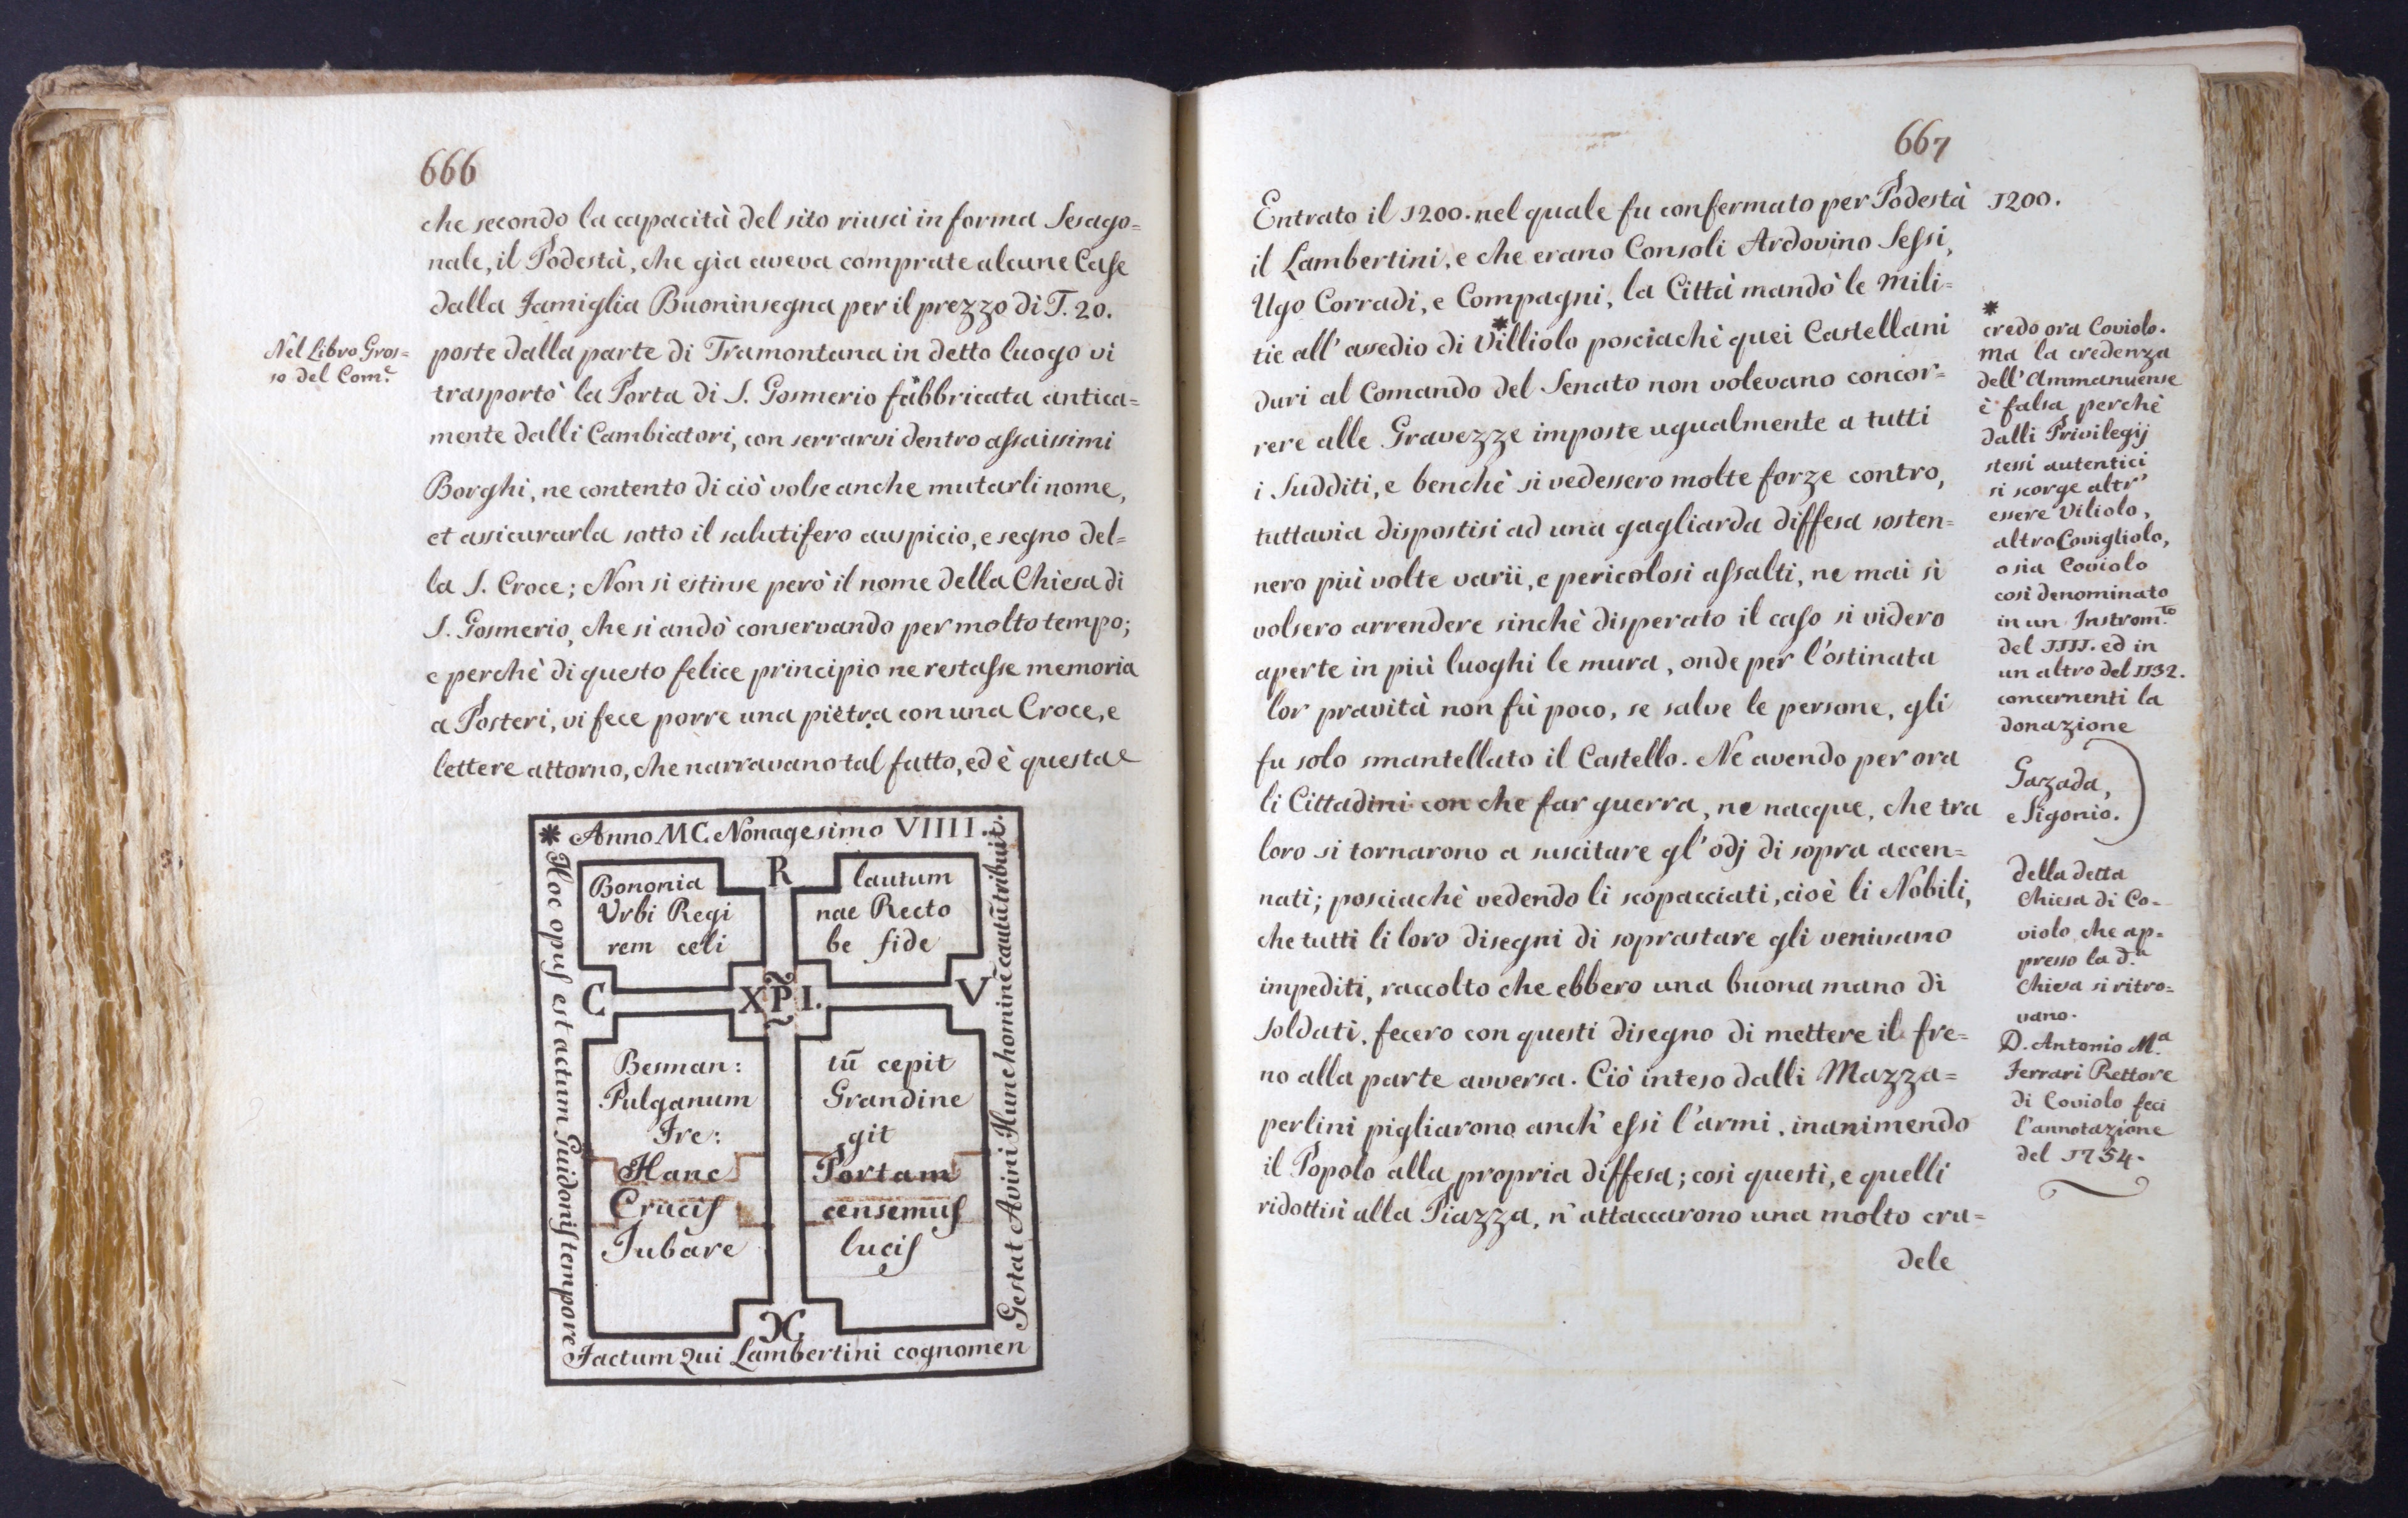 666
che secondo la capacità del sito riuscì in forma Sesago=
nale, il Podestà, che già aveva comprate alcune Case
dalla Famiglia Buoninsegna per il prezzo di T. 20.
poste dalla parte di Tramontana in detto luogo vi
trasportò la Porta di S. Gosmerio fabbricata antica=
mente dalli Cambiatori, con serrarvi dentro assaissimi
Borghi, ne contento di ciò volse anche mutarli nome,
et assicurarla sotto il salutifero auspicio, e segno del=
la S. Croce; Non si estinse però il nome della Chiesa di
S. Gosmerio, che si andò conservando per molto tempo;
e perchè di questo felice principio ne restasse memoria
a Posteri, vi fece porre una pietra con una Croce, e
lettere attorno, che narravano tal fatto, ed è questa
Nel Libro Gros=
so del Com.e
* Anno MC. Nonagesimo VIIII.
Hoc opus est actum Guidonis tempore
Factum Qui Lambertini cognomen
Gestat Avini Hunc homine cautū tribuit.
R
Bononia
Urbi Regi
rem celi
lautum
nae Recto
be fide
C
XP̃I.
V
Besman:
Pulganum
Fre:
Hanc
Crucis
Jubare
tū cepit
Grandine
git
Portam
censemus
lucis
X
667
Entrato il 1200. nel quale fu confermato per Podestà
il Lambertini, e che erano Consoli Ardovino Sessi,
Ugo Corradi, e Compagni, la Città mandò le Mili=
tie all' assedio di Villiolo* posciachè quei Castellani
duri al Comando del Senato non volevano concor=
rere alle Gravezze imposte ugualmente a tutti
i Sudditi, e benchè si vedessero molte forze contro,
tuttavia dispostisi ad una gagliarda diffesa sosten=
nero più volte varii, e pericolosi assalti, ne mai si
volsero arrendere sinchè disperato il caso si videro
aperte in più luoghi le mura, onde per l'ostinata
lor pravità non fù poco, se salve le persone, gli
fu solo smantellato il Castello. Ne avendo per ora
li Cittadini con che far guerra, ne nacque, che tra
loro si tornarono a suscitare gl' odj di sopra accen=
nati; posciachè vedendo li scopacciati, cioè li Nobili,
che tutti li loro disegni di soprastare gli venivano
impediti, raccolto che ebbero una buona mano di
soldati, fecero con questi disegno di mettere il fre=
no alla parte avversa. Ciò inteso dalli Mazza=
perlini pigliarono anch' essi l'armi, inanimendo
il Popolo alla propria diffesa; così questi, e quelli
ridottisi alla Piazza, n' attaccarono una molto cru=
dele
1200.
*
credo ora Coviolo.
ma la credenza
dell' Ammanuense
è falsa perchè
dalli Privilegij
stessi autentici
si scorge altr'
essere Viliolo,
altro Covigliolo,
o sia Coviolo
così denominato
in un Instrom.to
del 1111. ed in
un altro del 1132.
concernenti la
donazione
Gazada,
e Sigonio.
della detta
Chiesa di Co=
violo, che ap=
presso la d.a
Chiesa si ritro=
vano.
D. Antonio M.a
Ferrari Rettore
di Coviolo feci
l'annotazione
del 1754.